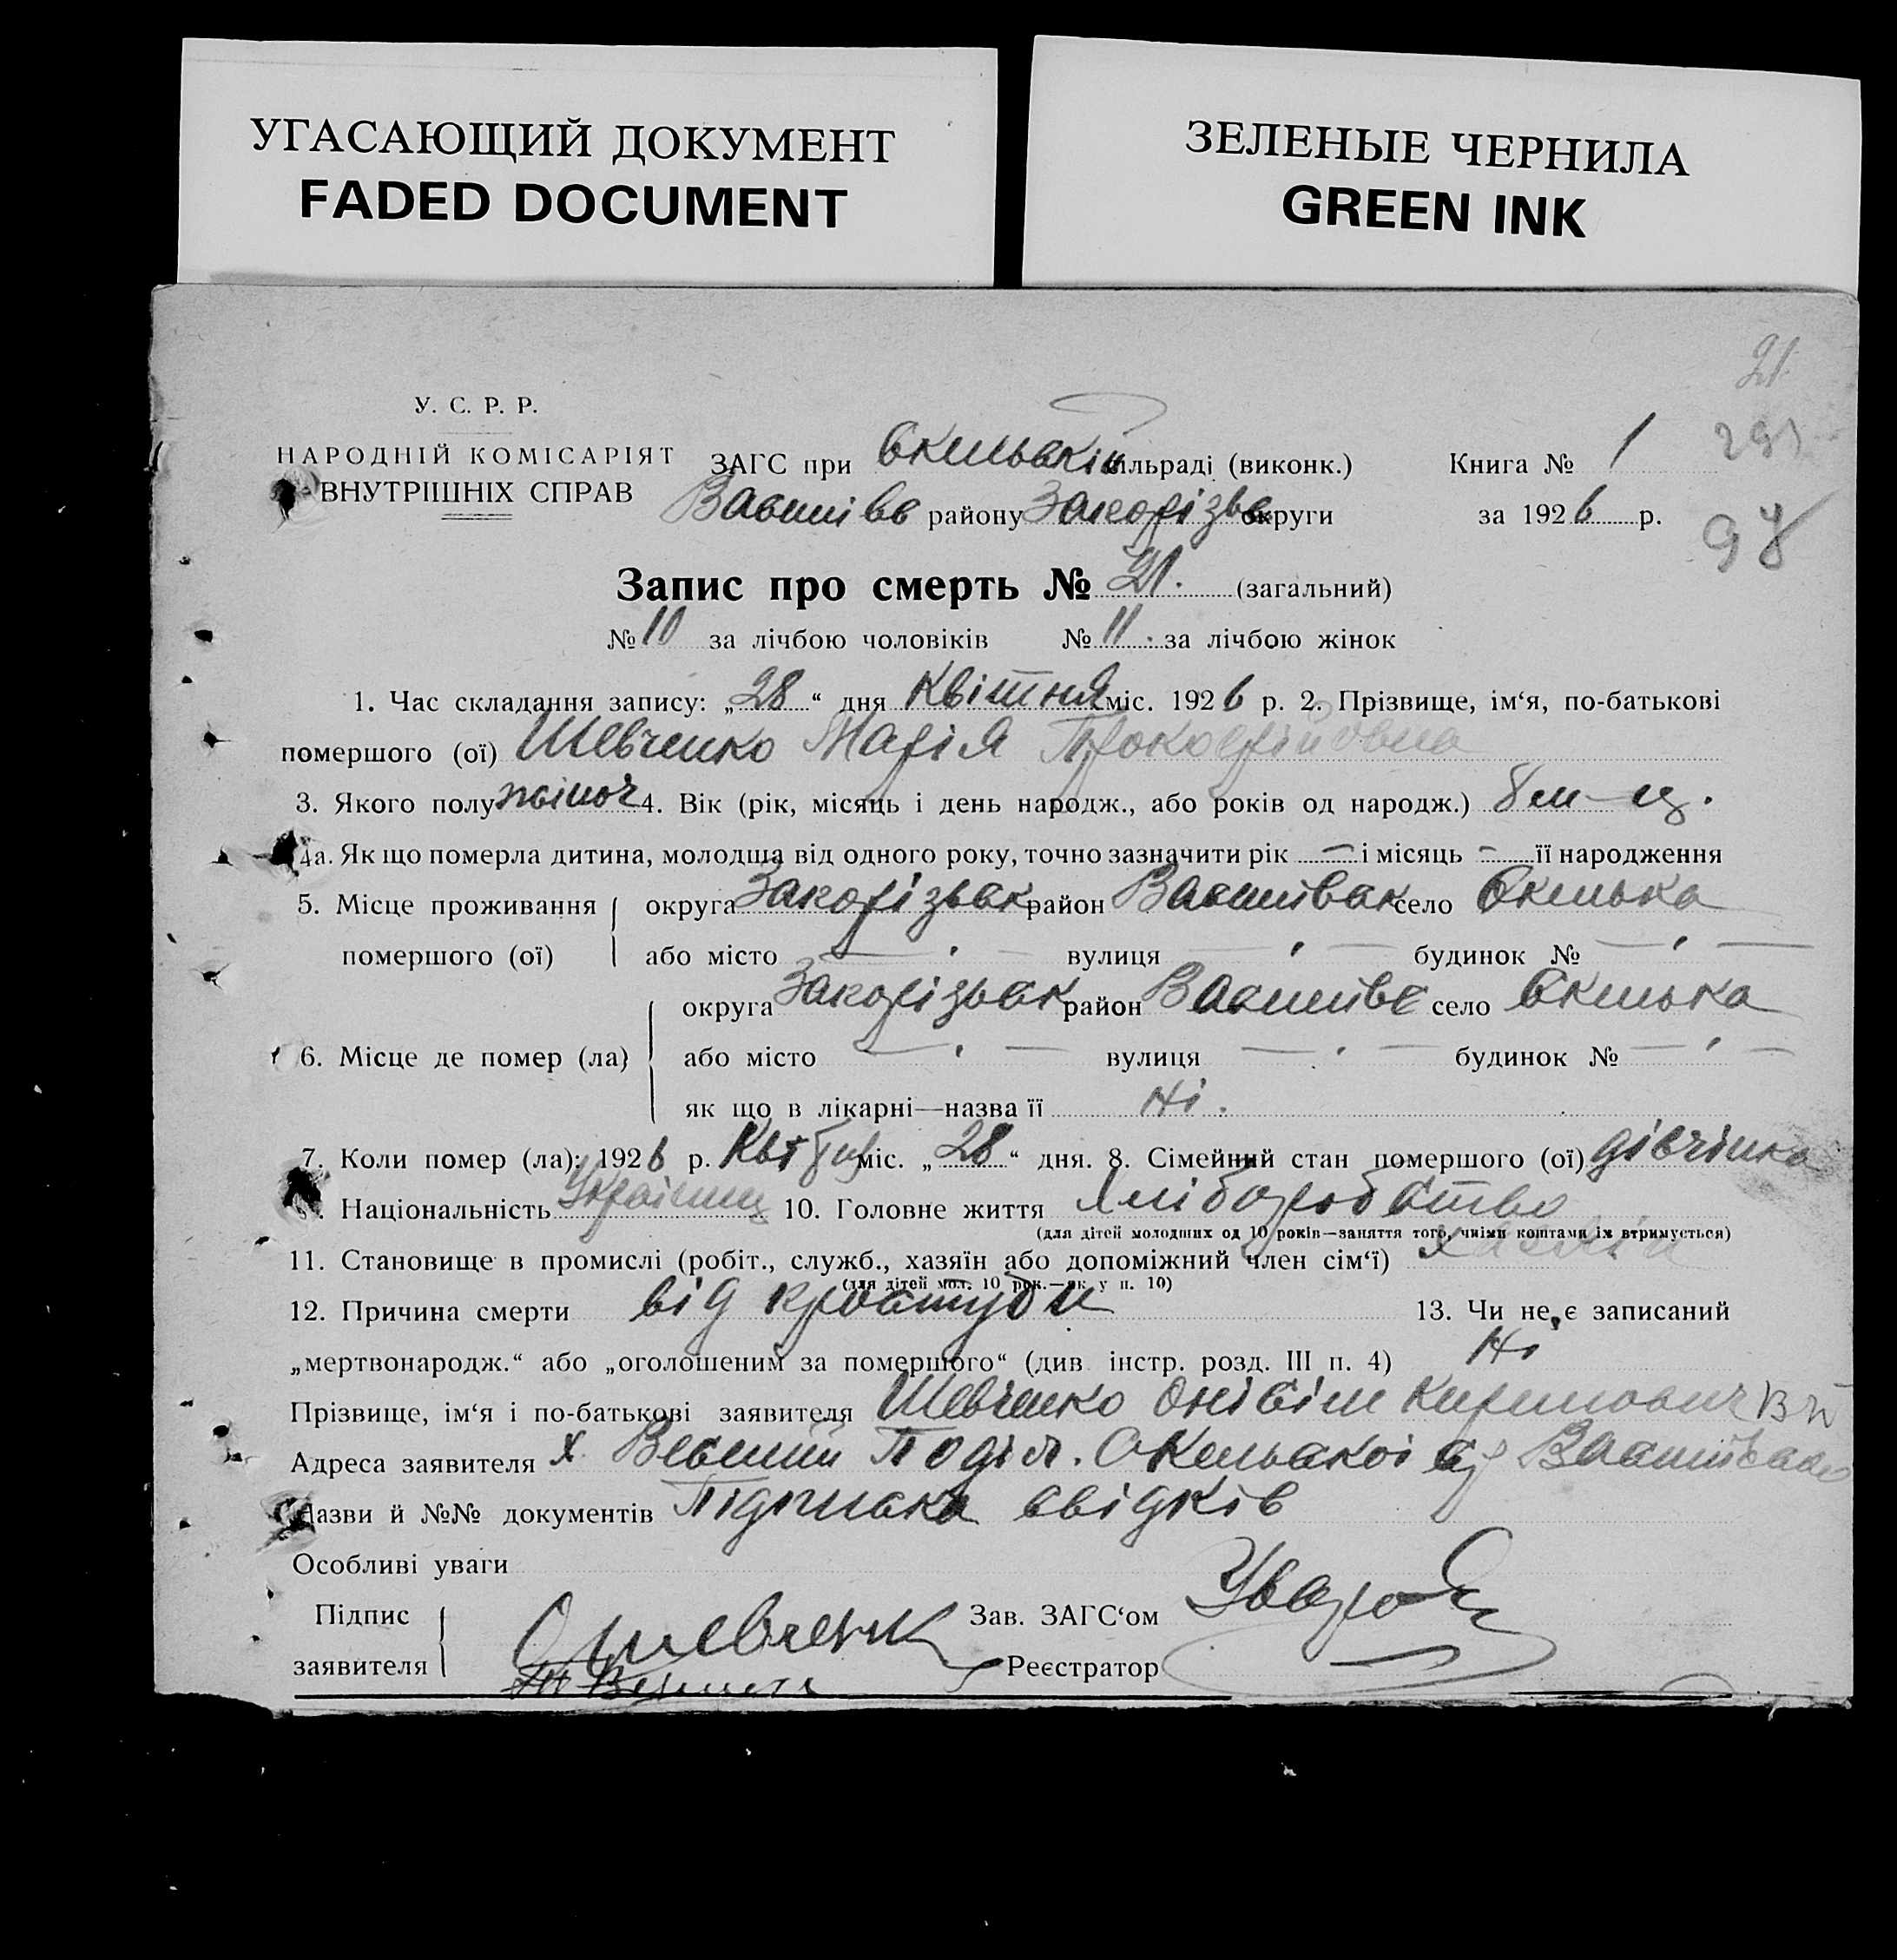 УГАСАЮЩИЙ ДОКУМЕНТ
FADED DOCUMENT
ЗЕЛЕНЫЕ ЧЕРНИЛА
GREEN INK
21.
У. С. Р. Р.
НАРОДНІЙ КОМІСАРІЯТ
ВНУТРІШНІХ СПРАВ
ЗАГС при Скельській сільраді (виконк.) Книга № 1
району округи за 1926 р.
98
Запис про смерть № 21. (загальний)
№ 10 за лічбою чоловіків № 11. за лічбою жінок
1. Час складання запису: „28“ дня Квітня міс. 1926 р. 2. Прізвище, ім‘я, по-батькові
помершого (ої) Шевченко Марія
3. Якого полу жіноч 4. Вік (рік, місяць і день народж., або років од народж.) 8 м-ц.
4а. Як що померла дитина, молодша від одного року, точно зазначити рік – і місяць – її народження
5. Місце проживання округа район село Скелька
помершого (ої) або місто — вулиця — будинок № —
округа район село Скелька
6. Місце де помер (ла) або місто — вулиця — будинок № —
як що в лікарні—назва її Ні.
7. Коли помер (ла): 1926 р. міс. „28“ дня. 8. Сімейний стан помершого (ої) дівчінка
Національність 10. Головне життя Хліборобство
(для дітей молодших од 10 років—заняття того, чиїми коштами їх втримується)
11. Становище в промислі (робіт., служб., хазяїн або допоміжний член сім‘ї)
(для дітей мол. 10 рок.—як у п. 10)
12. Причина смерти від простуди 13. Чи не є записаний
„мертвонародж.“ або „оголошеним за помершого“ (див. інстр. розд. III п. 4) Ні
Прізвище, ім‘я і по-батькові заявителя Шевченко
Адреса заявителя х.
Назви й №№ документів Підписка свідків
Особливі уваги
Підпис
заявителя
Зав. ЗАГС‘ом
Реєстратор